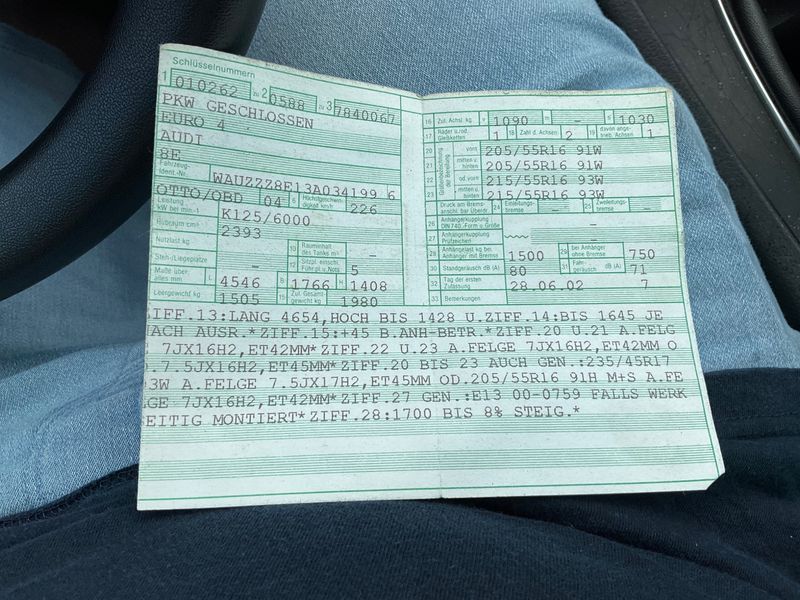 Schlüsselnummern
1 010262 zu 2 0588 zu 3 7840067
PKW GESCHLOSSEN
EURO 4
AUDI
8E
Fahrzeug-Ident.-Nr. WAUZZZ8E13A034199 6
OTTO/OBD 04 6 Höchstgeschwindigkeit km/h 226
Leistung kW bei min.-1 K125/6000
Hubraum cm³ 2393
Nutzlast kg 10 Rauminhalt des Tanks m³ -
Steh-/Liegeplätze - 12 Sitzpl. einschl. Führ.pl.u.Nots 5
Maße über alles mm L 4546 B 1766 H 1408
Leergewicht kg 1505 15 Zul. Gesamtgewicht kg 1980
16 Zul. Achsl. kg v 1090 m - h 1030
17 Räder u./od. Gleisketten 1 18 Zahl d. Achsen 2 19 davon angetrieb. Achsen 1
20 vorn 205/55R16 91W
21 mitten u. hinten 205/55R16 91W
22 od. vorn 215/55R16 93W
23 mitten u. hinten 215/55R16 93W
Größenbezeichnung der Bereifung
Druck am Bremsanschl. bar Überdr. 24 Einleitungsbremse - 25 Zweileitungsbremse -
26 Anhängerkupplung DIN 740.,Form u. Größe
27 Anhängerkupplung Prüfzeichen -
28 Anhängelast kg bei Anhänger mit Bremse 1500 29 bei Anhänger ohne Bremse 750
30 Standgeräusch dB (A) 80 31 Fahrgeräusch dB (A) 71
32 Tag der ersten Zulassung 28.06.02 7
33 Bemerkungen
ZIFF.13:LANG 4654,HOCH BIS 1428 U.ZIFF.14:BIS 1645 JE
NACH AUSR.*ZIFF.15:+45 B.ANH-BETR.*ZIFF.20 U.21 A.FELG
7JX16H2,ET42MM*ZIFF.22 U.23 A.FELGE 7JX16H2,ET42MM O
.7.5JX16H2,ET45MM*ZIFF.20 BIS 23 AUCH GEN.:235/45R17
93W A.FELGE 7.5JX17H2,ET45MM OD.205/55R16 91H M+S A.FE
LGE 7JX16H2,ET42MM*ZIFF.27 GEN.:E13 00-0759 FALLS WERK
SEITIG MONTIERT*ZIFF.28:1700 BIS 8% STEIG.*